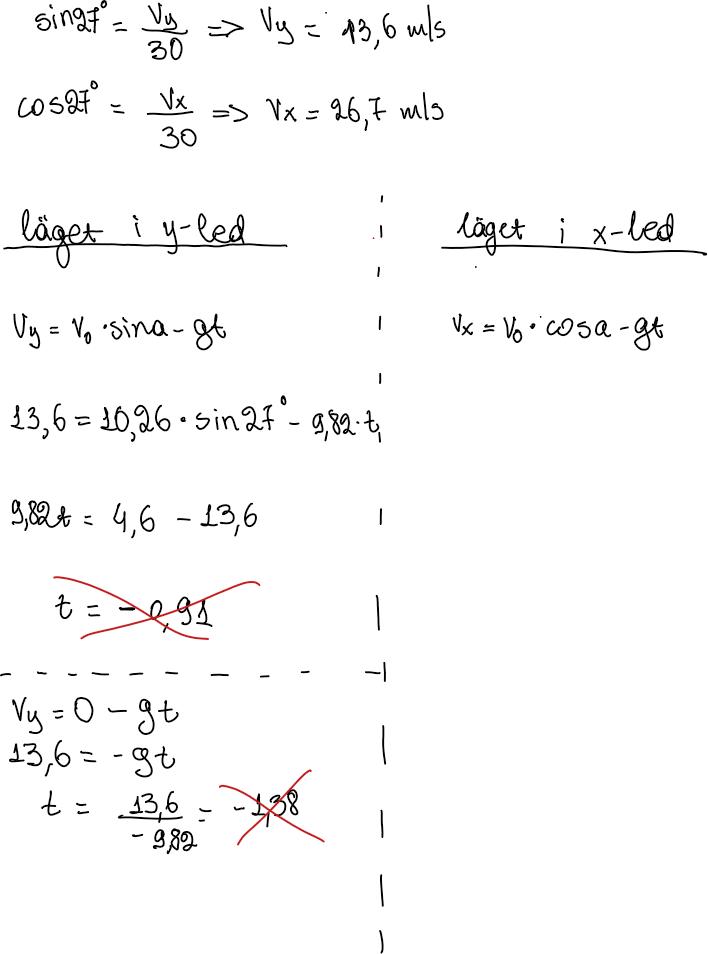 sin27° = Vy/30 => Vy = 13,6 m/s
cos27° = Vx/30 => Vx = 26,7 m/s
läget i y-led
Vy = V₀ · sina - gt
13,6 = 10,26 · sin27° - 9,82 · t
9,82t = 4,6 - 13,6
t = - 0,91
Vy = 0 - gt
13,6 = - gt
t = 13,6/-9,82 = -1,38
läget i x-led
Vx = V₀ · cosa - gt